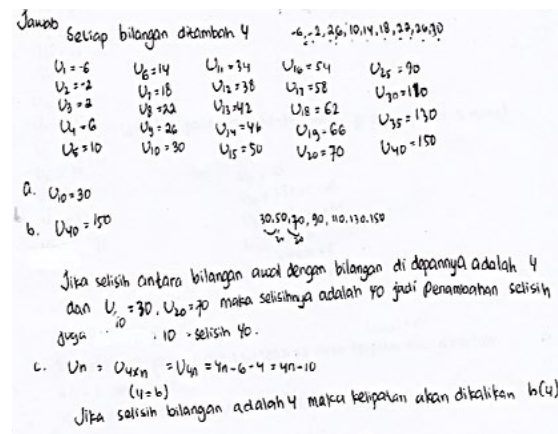 Jawab
Setiap bilangan ditambah 4
-6,-2,2,6,10,14,18,22,26,30
U₁ = -6 U₆ = 14 U₁₁ = 34 U₁₆ = 54 U₂₅ = 90
U₂ = -2 U₇ = 18 U₁₂ = 38 U₁₇ = 58 U₃₀ = 110
U₃ = 2 U₈ = 22 U₁₃ = 42 U₁₈ = 62 U₃₅ = 130
U₄ = 6 U₉ = 26 U₁₄ = 46 U₁₉ = 66 U₄₀ = 150
U₅ = 10 U₁₀ = 30 U₁₅ = 50 U₂₀ = 70
a. U₁₀ = 30
b. U₄₀ = 150
30,50,70,90,110,130,150
20 20
Jika selisih antara bilangan awal dengan bilangan di depannya adalah 4
dan U₁₀ = 30, U₂₀ = 70 maka selisihnya adalah 40 jadi penambahan selisih
juga 10 - selisih 40.
c. Un = U₄ₓₙ = U₄ₙ = 4n-6-4 = 4n-10
(4=b)
Jika selisih bilangan adalah 4 maka kelipatan akan dikalikan b(4)